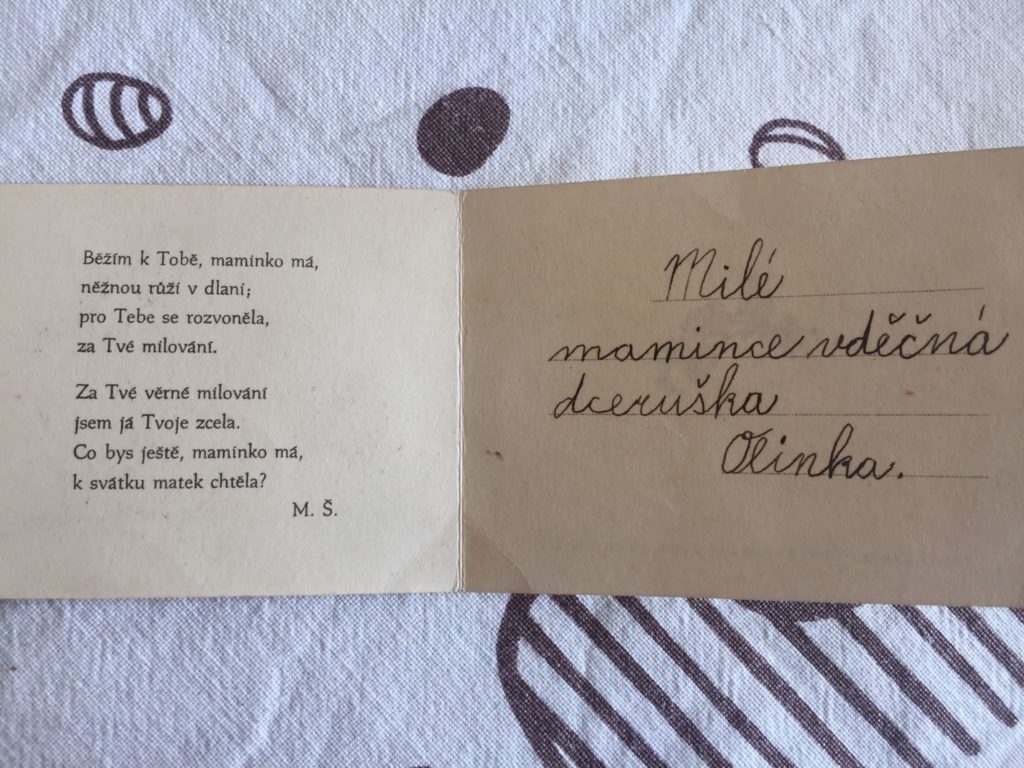 Běžím k Tobě, maminko má,
něžnou růží v dlani;
pro Tebe se rozvoněla,
za Tvé milování.
Za Tvé věrné milování
jsem já Tvoje zcela.
Co bys ještě, maminko má,
k svátku matek chtěla?
M. Š.
Milé
mamince vděčná
dceruška
Olinka.